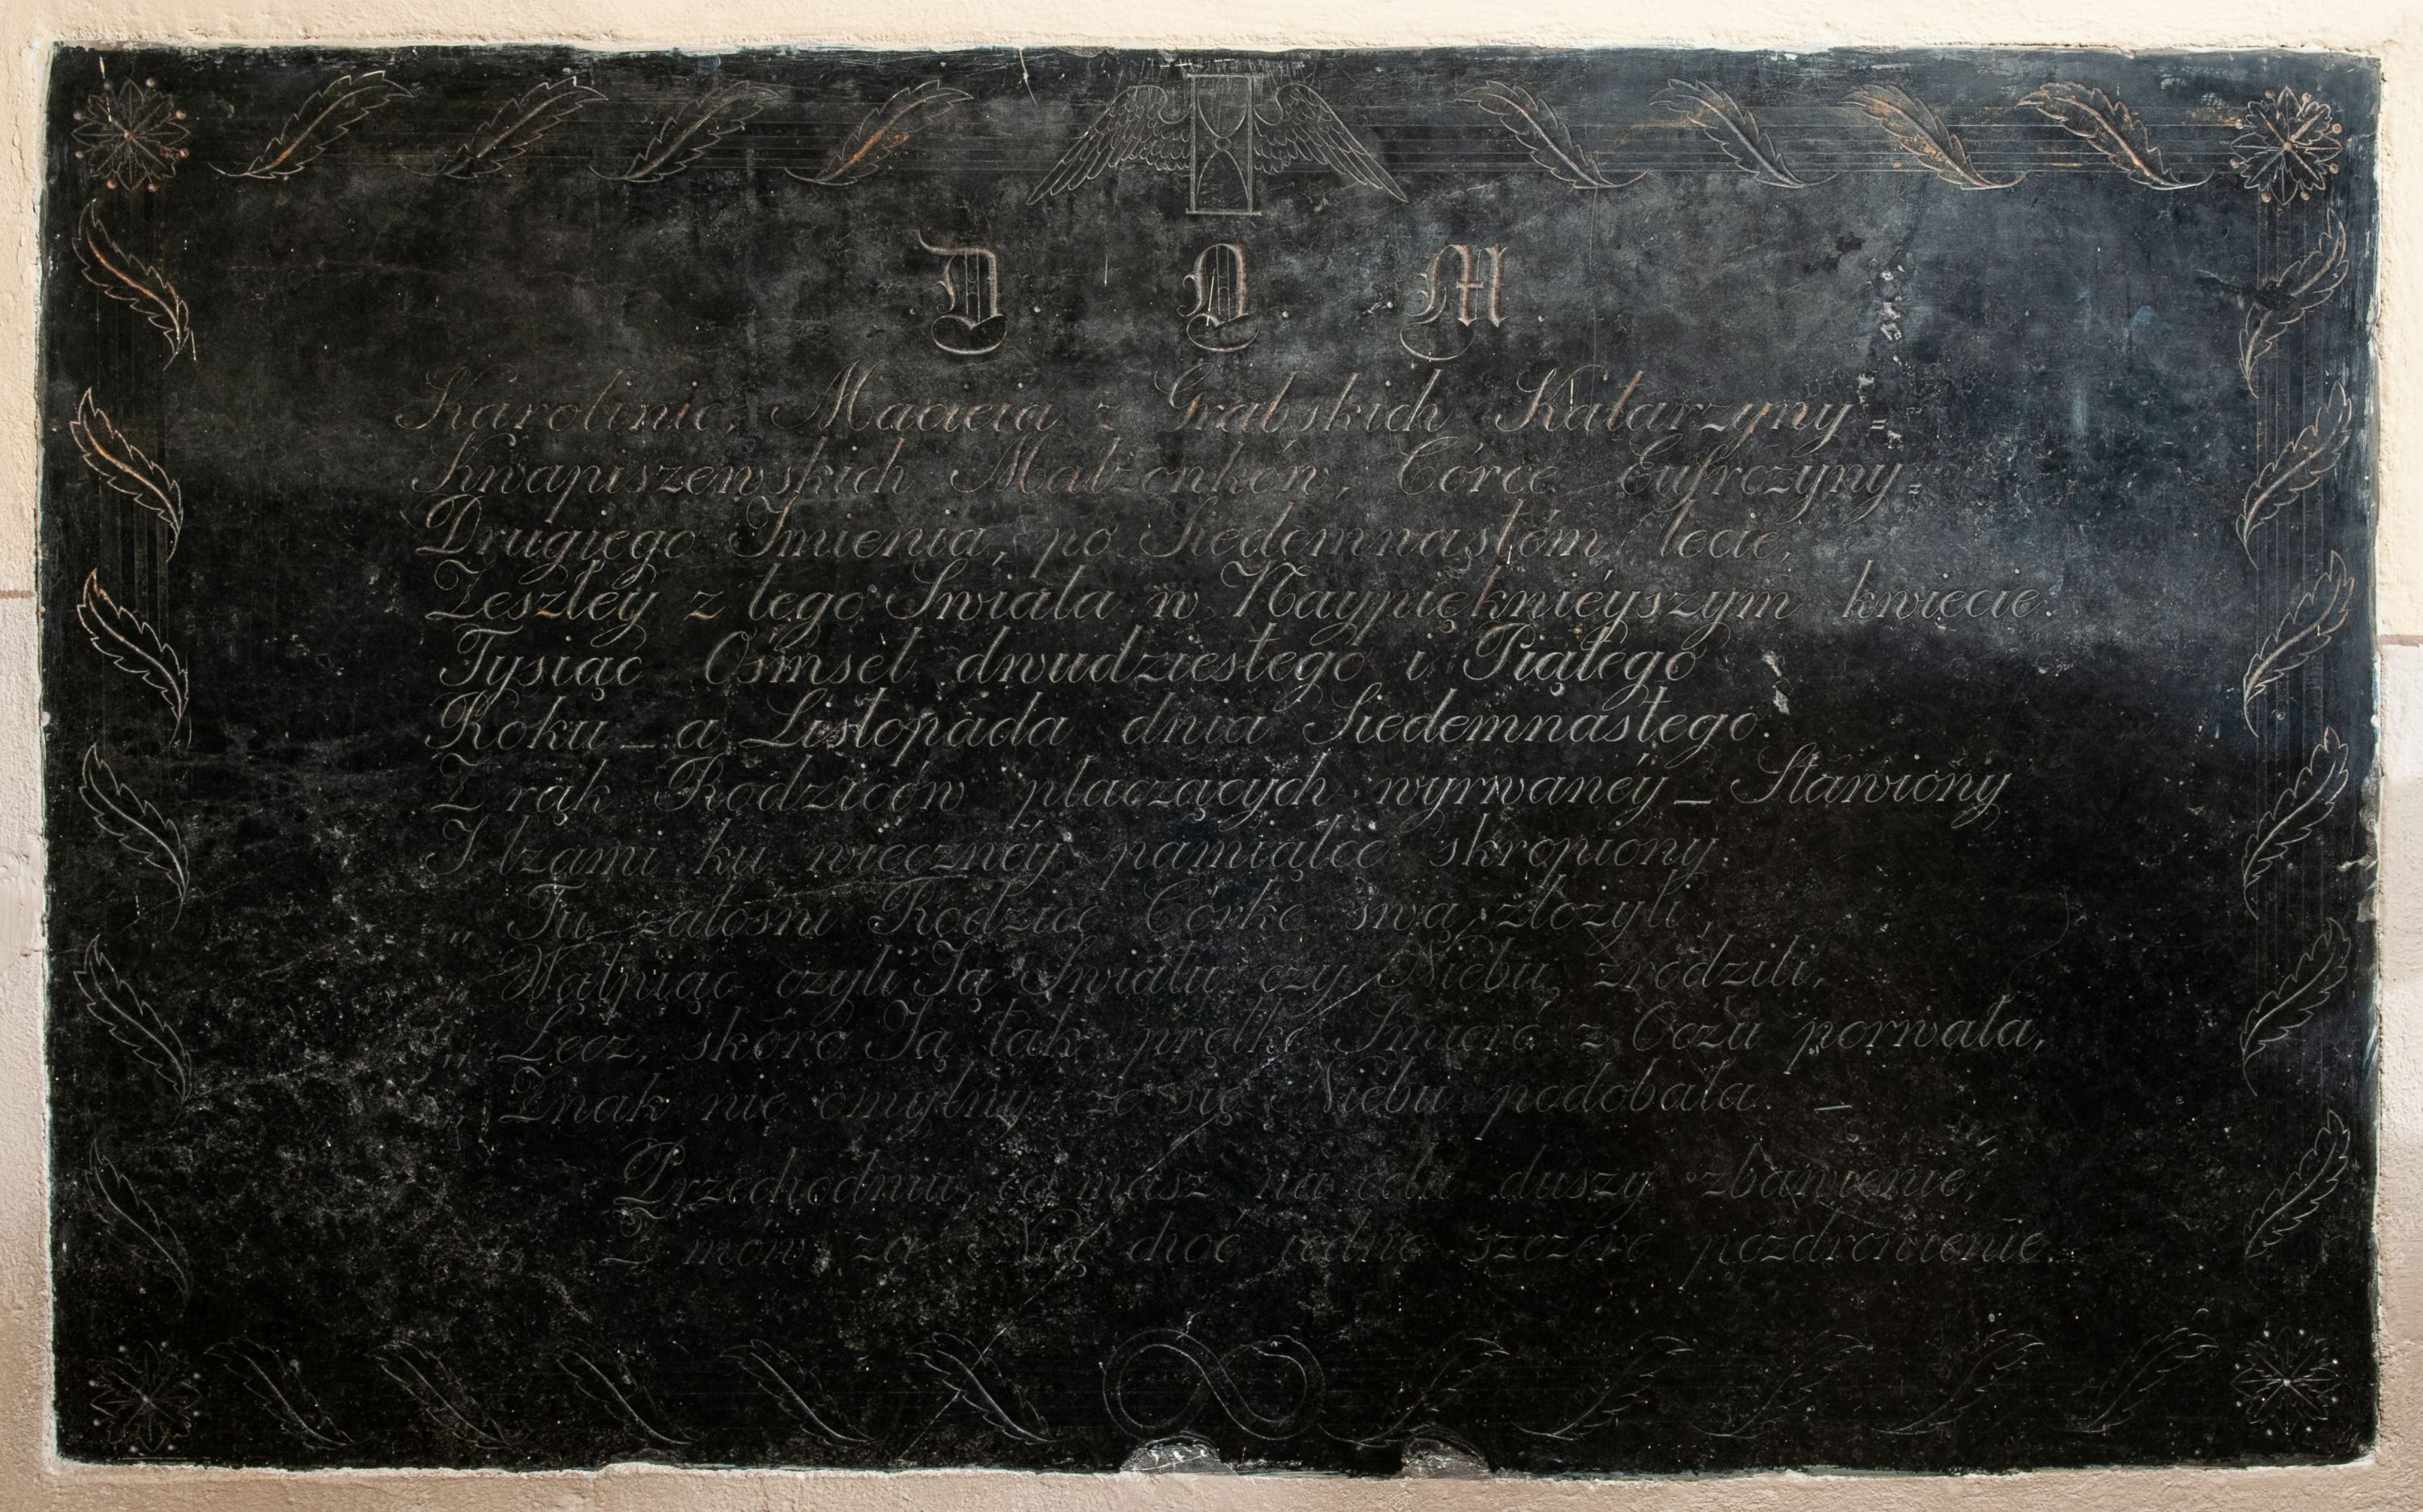 D. O. M.
Karolinie, Macieia z Grabskich Katarzyny =
Kwapiszewskich Małżonków, Córce Eufrozyny =
Drugiego Imienia, po Siedemnastém lecie,
Zeszłéy z tego Swiata w Naypiękniéyszym kwiecie.
Tysiąc Ośmset dwudziestego i Piątego
Roku _ a Listopada dnia Siedemnastego.
Z rąk Rodziców płaczących wyrwanéy _ Stawiony
I łzami ku wiecznéy pamiątce skropiony.
„ Tu żałośni Rodzice Córkę swą złożyli,
„ Wątpiąc czyli Ją Swiatu czy Niebu zrodzili,
„ Lecz, skóro Ją tak prętko Smierć z Oczu porwała,
„ Znak nie omylny; że się Niebu podobała. _
Przechodniu, co masz na celu duszy zbawienie,
Z mów za Nią choć iedno szczére pozdrowienie.